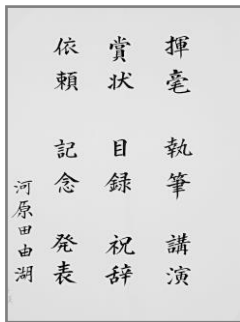 揮毫 執筆 講演
賞状 目録 祝辞
依頼 記念 発表
河原田由湖